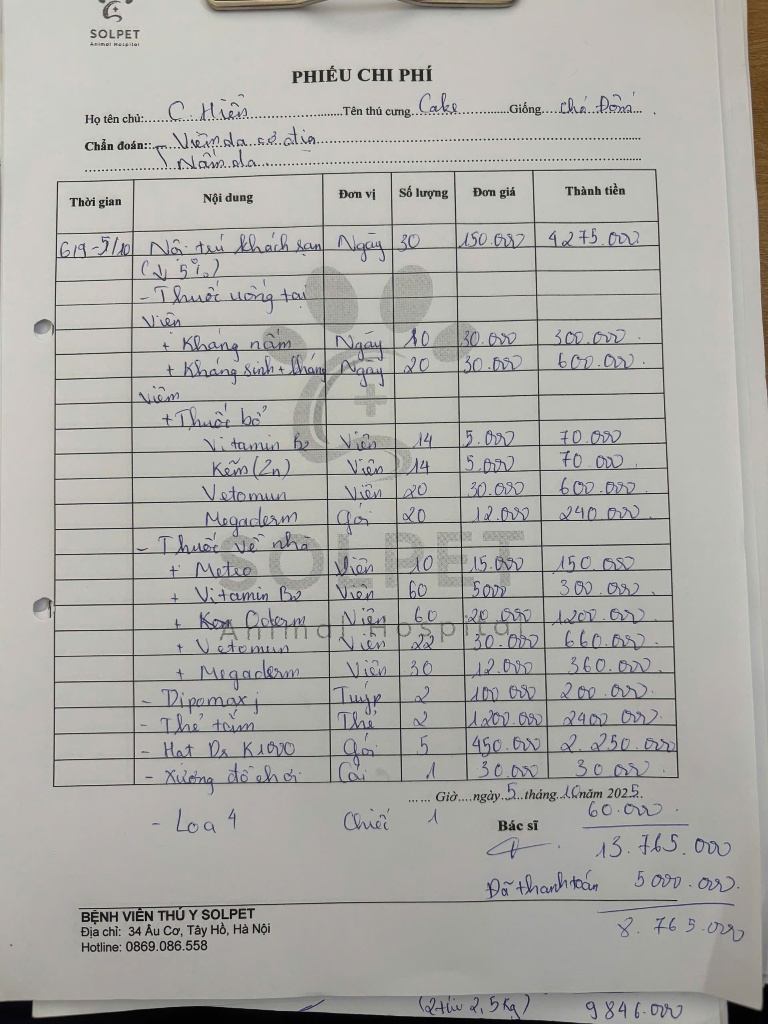 SOLPET
Animal Hospital
PHIẾU CHI PHÍ
Họ tên chủ:......C. Hiền.........Tên thú cưng..Cake.........Giống....Chó Đốm....
Chẩn đoán:: - Viêm da cơ địa
- Nấm da
Thời gian Nội dung Đơn vị Số lượng Đơn giá Thành tiền
6/9-5/10 Nội trú khách sạn Ngày 30 150.000 4275.000
(↓ 5%)
- Thuốc uống tại
Viện
+ Kháng nấm Ngày 10 30.000 300.000
+ Kháng sinh + kháng Ngày 20 30.000 600.000
viêm
+ Thuốc bổ
Vitamin B2 Viên 14 5.000 70.000
Kẽm (Zn) Viên 14 5.000 70.000
Vetomun Viên 20 30.000 600.000
Megaderm Gói 20 12.000 240.000
- Thuốc về nhà
+ Meteo Viên 10 15.000 150.000
+ Vitamin B2 Viên 60 5000 300.000
+ Oderm Viên 60 20.000 1200.000
+ Vetomun Viên 22 30.000 660.000
+ Megaderm Viên 30 12.000 360.000
- Dipomax j Tuýp 2 100 000 200.000
- Thẻ tắm Thẻ 2 1200.000 2400 000
- Hạt Dr K1000 Gói 5 450.000 2.250.000
- Xương đồ chơi Cái 1 30.000 30.000
SOLPET
Animal Hospital
...... Giờ....ngày 5 tháng 10 năm 2025.
- Loa 4 Chiếc 1 60.000
Bác sĩ
13.765.000
Đã thanh toán 5 000.000
8.765.000
BỆNH VIỆN THÚ Y SOLPET
Địa chỉ: 34 Âu Cơ, Tây Hồ, Hà Nội
Hotline: 0869.086.558
2,5kg) 9846.000